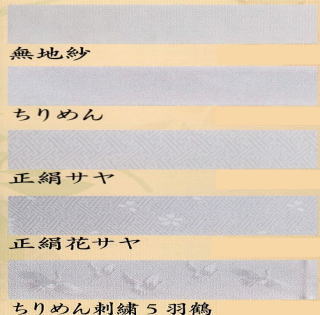 無地紗
ちりめん
正絹サヤ
正絹花サヤ
ちりめん刺繍5羽鶴